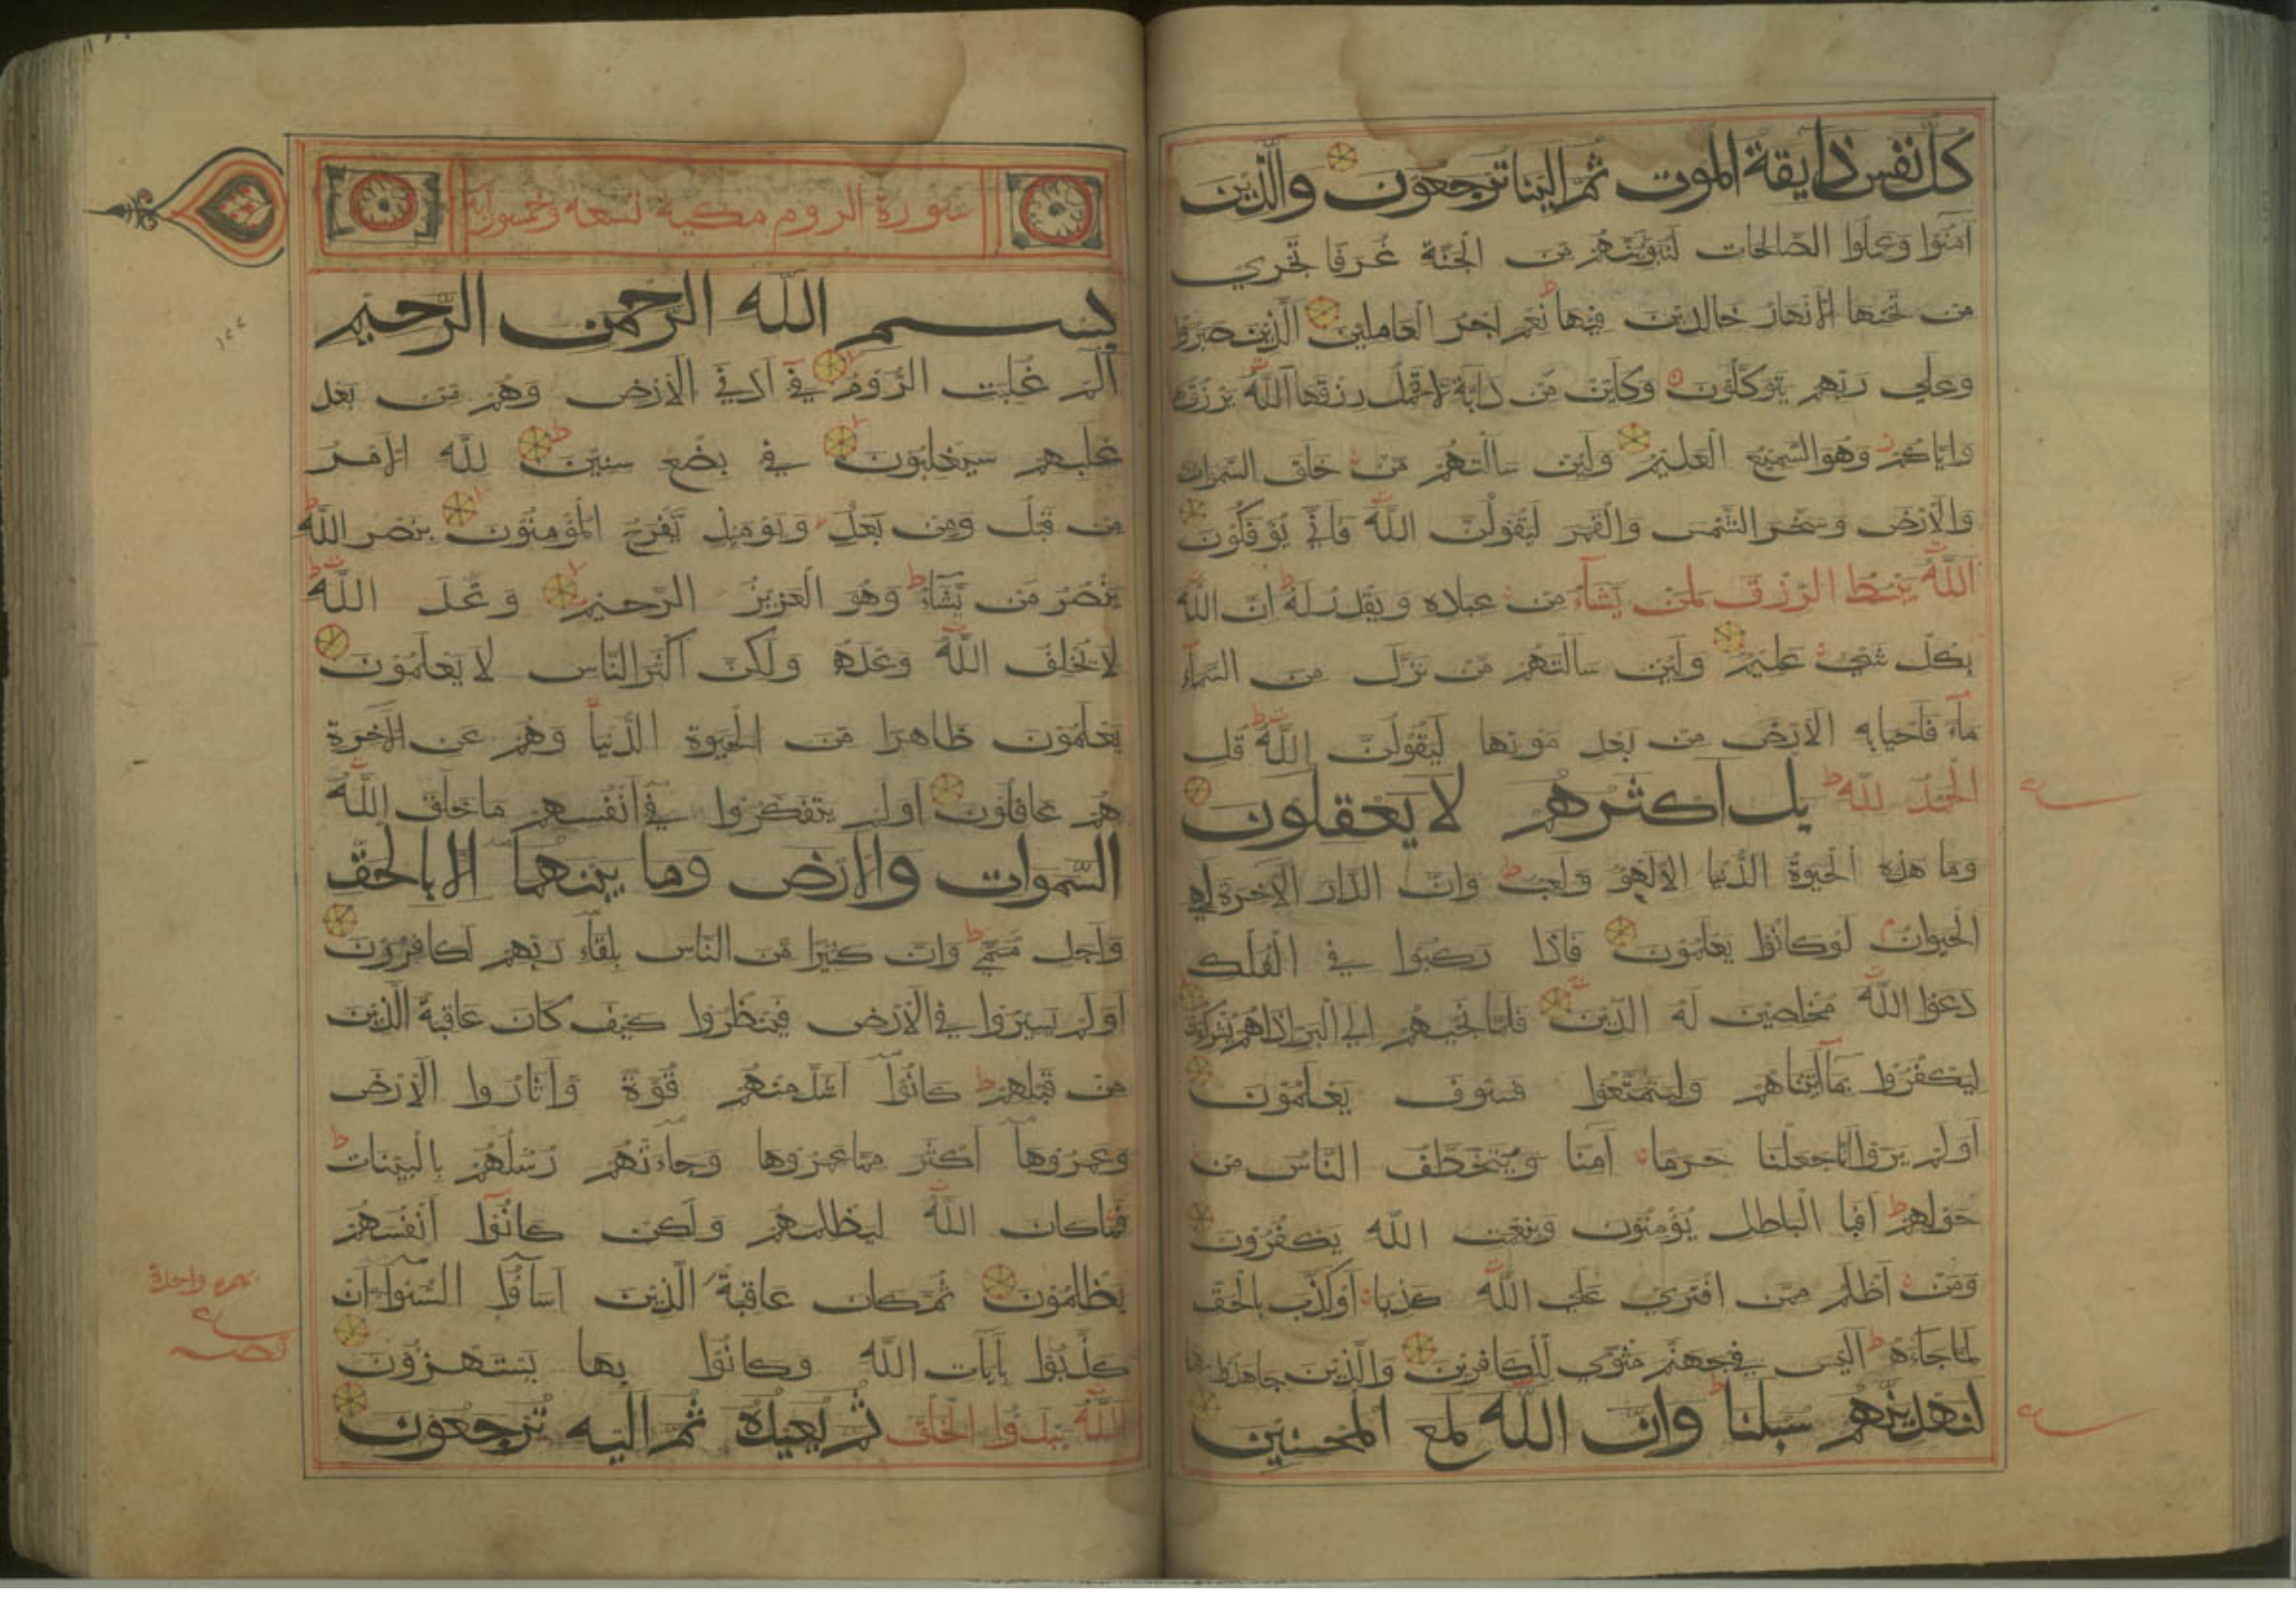 كل نفس ذايقة الموت ثم الينا ترجعون والذين
امنوا وعملوا الصالحات لنبوينهم من الجنة غرفا تجري
من تحتها الانهار خالدين فيها نعم اجر العاملين الذين صبروا
وعلي ربهم يتوكلون وكاين من دابة لا تحمل رزقها الله يرزقها
واياكم وهو السميع العليم ولين سالتهم من خلق السموات
والارض وسخر الشمس والقمر ليقولن الله فاني يوفكون
الله يبسط الرزق لمن يشاء من عباده ويقدر له ان الله
بكل شي عليم ولين سالتهم من نزل من السماء
ماء فاحيابه الارض من بعد موتها ليقولن الله قل
الحمد لله بل اكثرهم لا يعقلون
وما هذه الحيوة الدنيا الا لهو ولعب وان الدار الاخرة لهي
الحيوان لو كانوا يعلمون فاذا ركبوا في الفلك
دعوا الله مخلصين له الدين فلما نجيهم الي البر اذا هم يشركون
ليكفروا بما آتيناهم وليتمتعوا فسوف يعلمون
اولم يروا انا جعلنا حرما آمنا ويتخطف الناس من
حولهم افبا الباطل يؤمنون وبنعمت الله يكفرون
ومن اظلم ممن افتري علي الله كذبا او كذب بالحق
لما جاءه اليس في جهنم مثوي للكافرين والذين جاهدوا فينا
لنهدينهم سبلنا وان الله لمع المحسنين
سورة الروم مكية تسعة وخمسون اية
بسم الله الرحمن الرحيم
الم غلبت الروم في ادني الارض وهم من بعد
غلبهم سيغلبون في بضع سنين لله الامر
من قبل ومن بعد ويوميذ يفرح المؤمنون بنصر الله
ينصر من يشاء وهو العزيز الرحيم وعد الله
لا يخلف الله وعده ولكن اكثر الناس لا يعلمون
يعلمون ظاهرا من الحيوة الدنيا وهم عن الآخرة
هم غافلون اولم يتفكروا في انفسهم ما خلق الله
السموات والارض وما بينهما الا بالحق
واجل مسمي وان كثيرا من الناس بلقاء ربهم لكافرون
اولم يسيروا في الارض فينظروا كيف كان عاقبة الذين
من قبلهم كانوا اشد منهم قوة واثاروا الارض
وعمروها اكثر مما عمروها وجاءتهم رسلهم بالبينات
فما كان الله ليظلمهم ولكن كانوا انفسهم
يظلمون ثم كان عاقبة الذين اساؤا السوآ ان
كذبوا بآيات الله وكانوا بها يستهزؤن
الله يبدؤا الخلق ثم يعيده ثم اليه ترجعون
١٢٢
واحدة